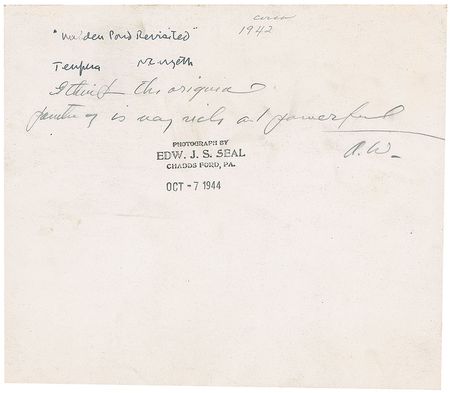 circa
1942
"Walden Pond Revisited"
Tempera N.C. Wyeth
I think the original
painting is very rich and powerful
A.W.
PHOTOGRAPH BY
EDW. J. S. SEAL
CHADDS FORD, PA.
OCT - 7 1944